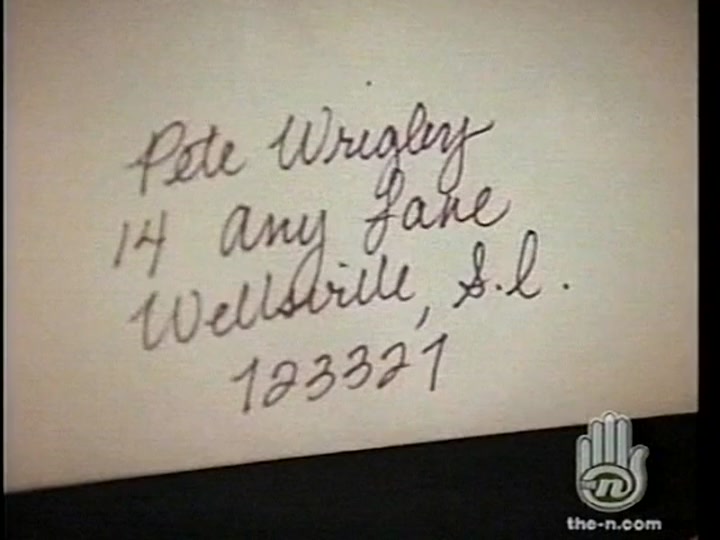 Pete Wrigley
14 Any Lane
Wellsville, S.l.
123321
n
the-n.com